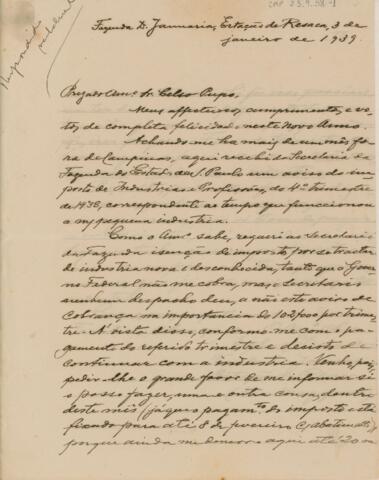 CMP 23.9.58-1
Respondida
Fazenda D. Januaria, Estação de Resaca, 3 de
janeiro de 1939.
Prezado Amº. Sr. Celso Pupo.
Meus affectuosos cumprimentos e vo-
tos de completa felicidade neste Novo Anno.
Achando me ha mais de um mês fó-
ra de Campinas, aqui recebi da Secretaria da
Fazenda do Estado de S. Paulo um aviso do im-
posto de Industrias e Profissões, do 4º trimestre
de 1938, correspondente ao tempo que funccionou
a my pequena industria.
Como o Amº. sabe, requeri ao Secretario
da Fazenda isenção de imposto por se tractar
de industria nova e desconhecida, tanto que o Gover
no Federal não me cobra, mas o Secretario
nenhum despacho deu, a não este aviso de
cobrança na importancia de 102$000 por trimes-
tre. Á vista disso, conformo-me com o pa-
gamento do referido trimestre e desisto de
continuar com a industria. Venho, pois,
pedir-lhe o grande favor de me informar si
o posso fazer, uma e outra cousa, dentro
deste mês, já que o pagamtº. do imposto está
fixado para até 8 de fevereiro
porque ainda me demoro aqui até 20 ou